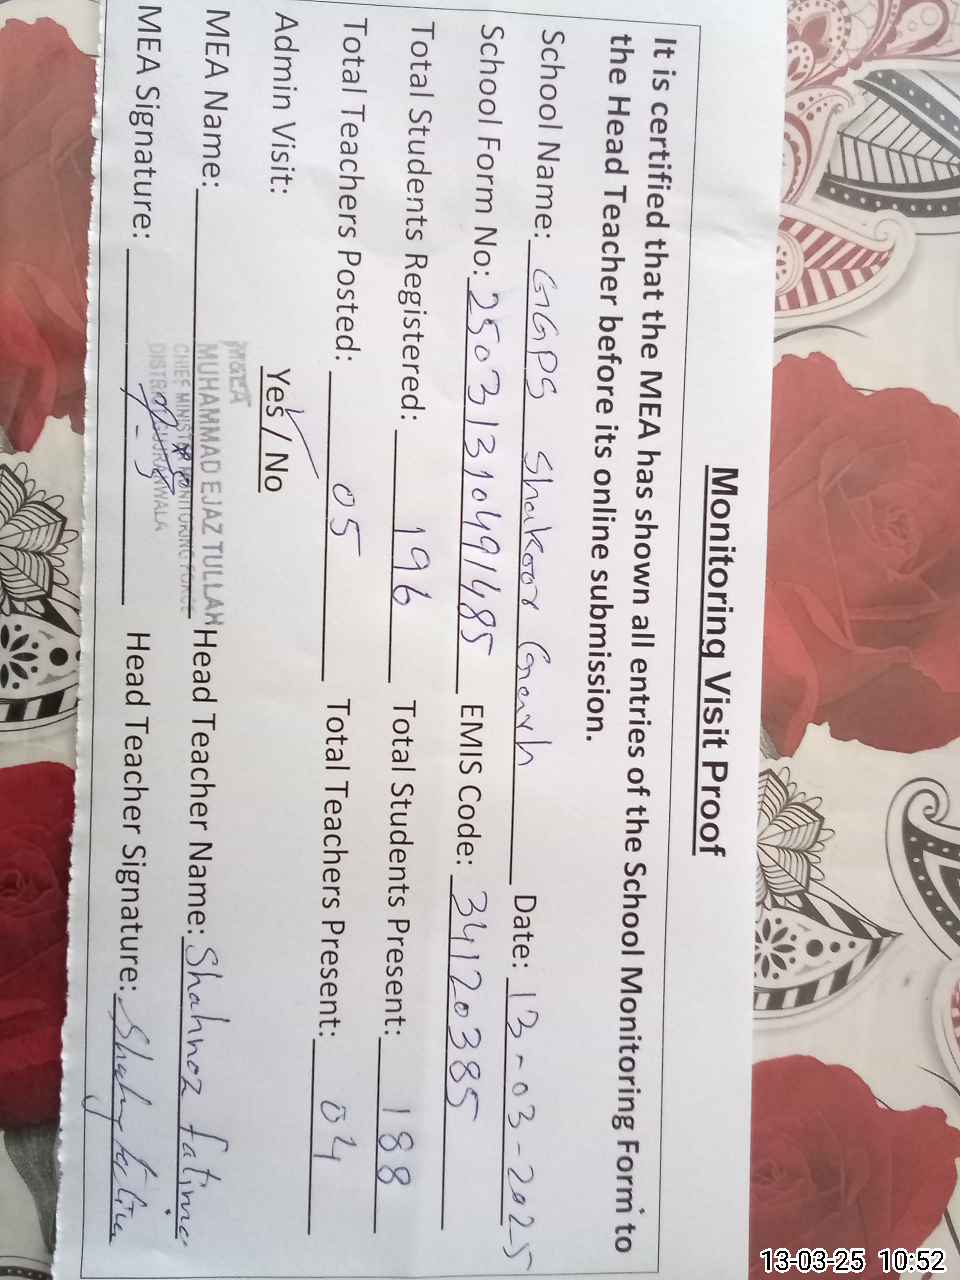 Monitoring Visit Proof
It is certified that the MEA has shown all entries of the School Monitoring Form to
the Head Teacher before its online submission.
School Name: GGPS Shakoor Garh Date: 13-03-2025
School Form No: 25031310491485 EMIS Code: 34120385
Total Students Registered: 196 Total Students Present: 188
Total Teachers Posted: 05 Total Teachers Present: 04
Admin Visit: Yes / No
M&EA
MEA Name: MUHAMMAD EJAZ TULLAH Head Teacher Name: Shahnaz fatima
CHIEF MINISTER MONITORING FORCE
DISTT GUJRANWALA
MEA Signature: Head Teacher Signature:
13-03-25 10:52